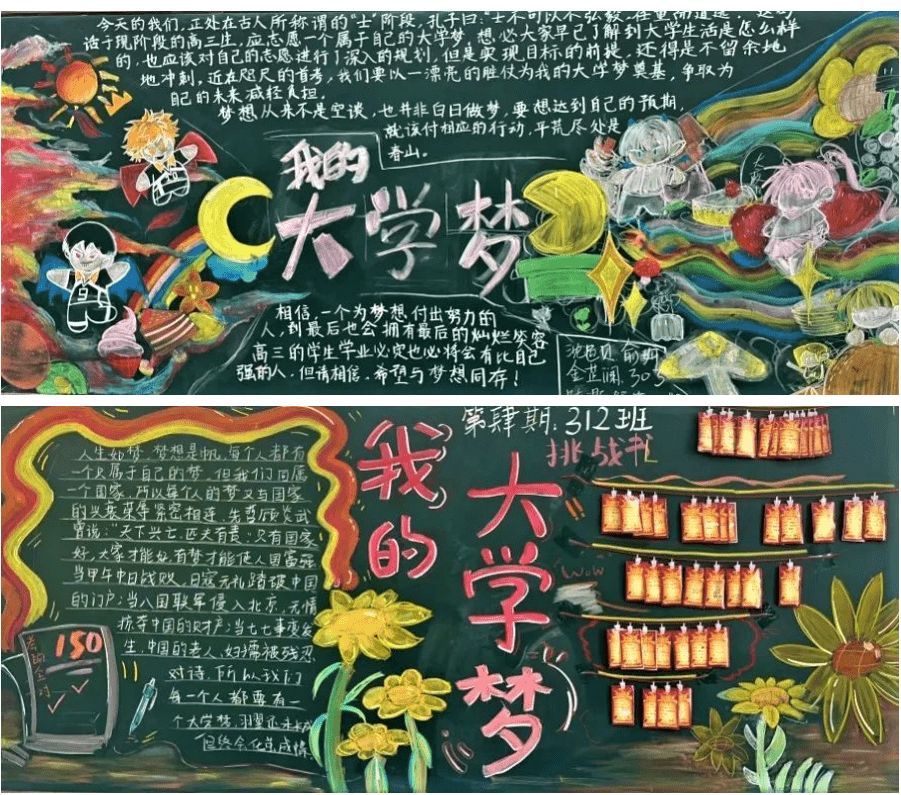 今天的我们，正处在古人所称谓的“士”阶段，孔子曰：“士不可以不弘毅，任重而道远。”
话于现阶段的高三生，应志愿一个属于自己的大学梦，想必大家早已了解到大学生活是怎么样
的，也应该对自己的志愿进行了深入的规划，但是实现目标的前提，还得是不留余地
地冲刺，近在咫尺的首考，我们要以一漂亮的胜仗为我的大学梦奠基，争取为
自己的未来减轻负担。
梦想从来不是空谈，也并非白日做梦，要想达到自己的预期，
就该付相应的行动，平荒尽处是
春山。
我的
大学梦
相信，一个为梦想付出努力的
人，到最后也会拥有最后的灿烂笑容
高三的学生学业必定也必将会有比自己
强的人，但请相信，希望与梦想同存！
303
第肆期：312班
挑战书
我的
大学梦
人生如梦，梦想是帆，每个人都有
一个只属于自己的梦，但我们同属
一个国家，所以每个人的梦又与国家
的兴衰荣辱紧密相连，先哲顾炎武
曾说：“天下兴亡，匹夫有责”只有国家
好，大家才能好，有梦才能使人国富强
当甲午中日战败，日寇无礼踏破中国
的门户；当八国联军侵入北京，无情
掠夺中国的财产；当七七事变发
生，中国的老人、妇孺被残忍
对待，所以我们
每一个人都要有一
个大学梦，羽翼还未
但终会化茧成蝶
150
Wow